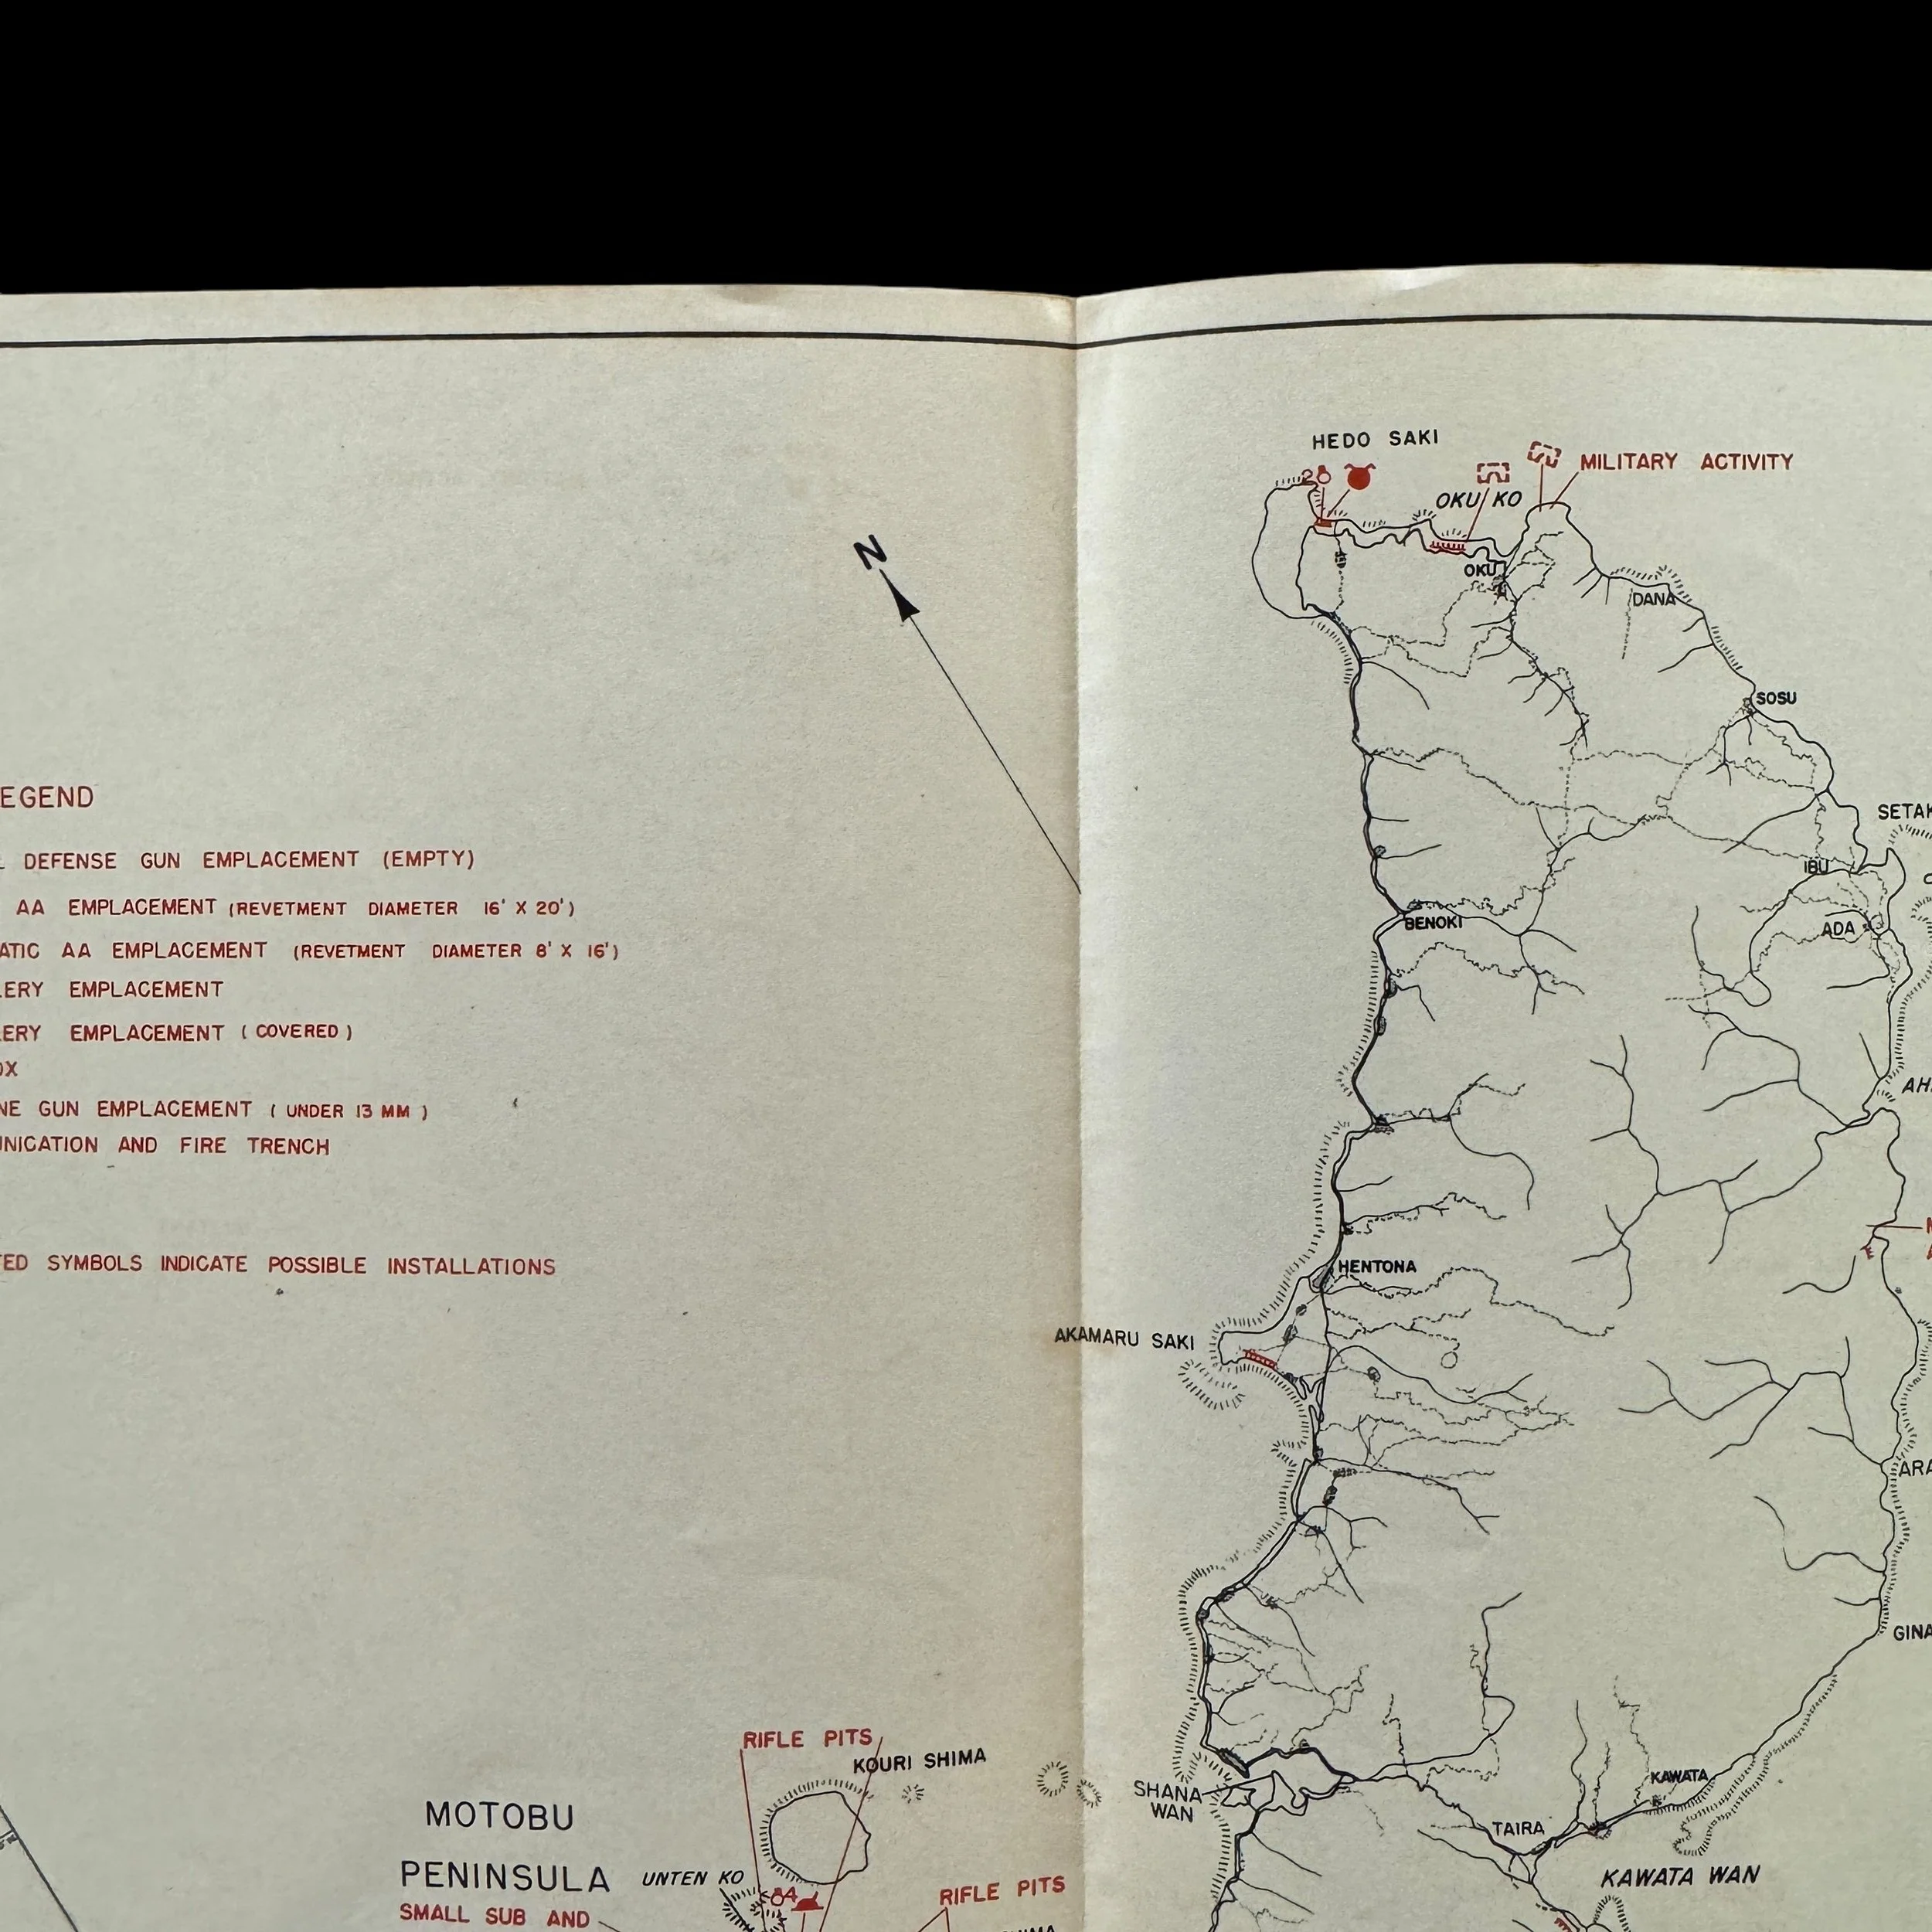 HEDO SAKI
2
MILITARY ACTIVITY
OKU KO
N
OKU
DANA
SOSU
EGEND
SETAK
DEFENSE GUN EMPLACEMENT (EMPTY)
IBU
AA EMPLACEMENT (REVETMENT DIAMETER 16' X 20')
BENOKI
ADA
ATIC AA EMPLACEMENT (REVETMENT DIAMETER 8' X 16')
LERY EMPLACEMENT
LERY EMPLACEMENT (COVERED)
OX
AH
NE GUN EMPLACEMENT (UNDER 13 MM)
UNICATION AND FIRE TRENCH
HENTONA
TED SYMBOLS INDICATE POSSIBLE INSTALLATIONS
AKAMARU SAKI
ARA
GINA
RIFLE PITS
KOURI SHIMA
KAWATA
SHANA
WAN
MOTOBU
TAIRA
PENINSULA
UNTEN KO
KAWATA WAN
84
RIFLE PITS
SMALL SUB AND